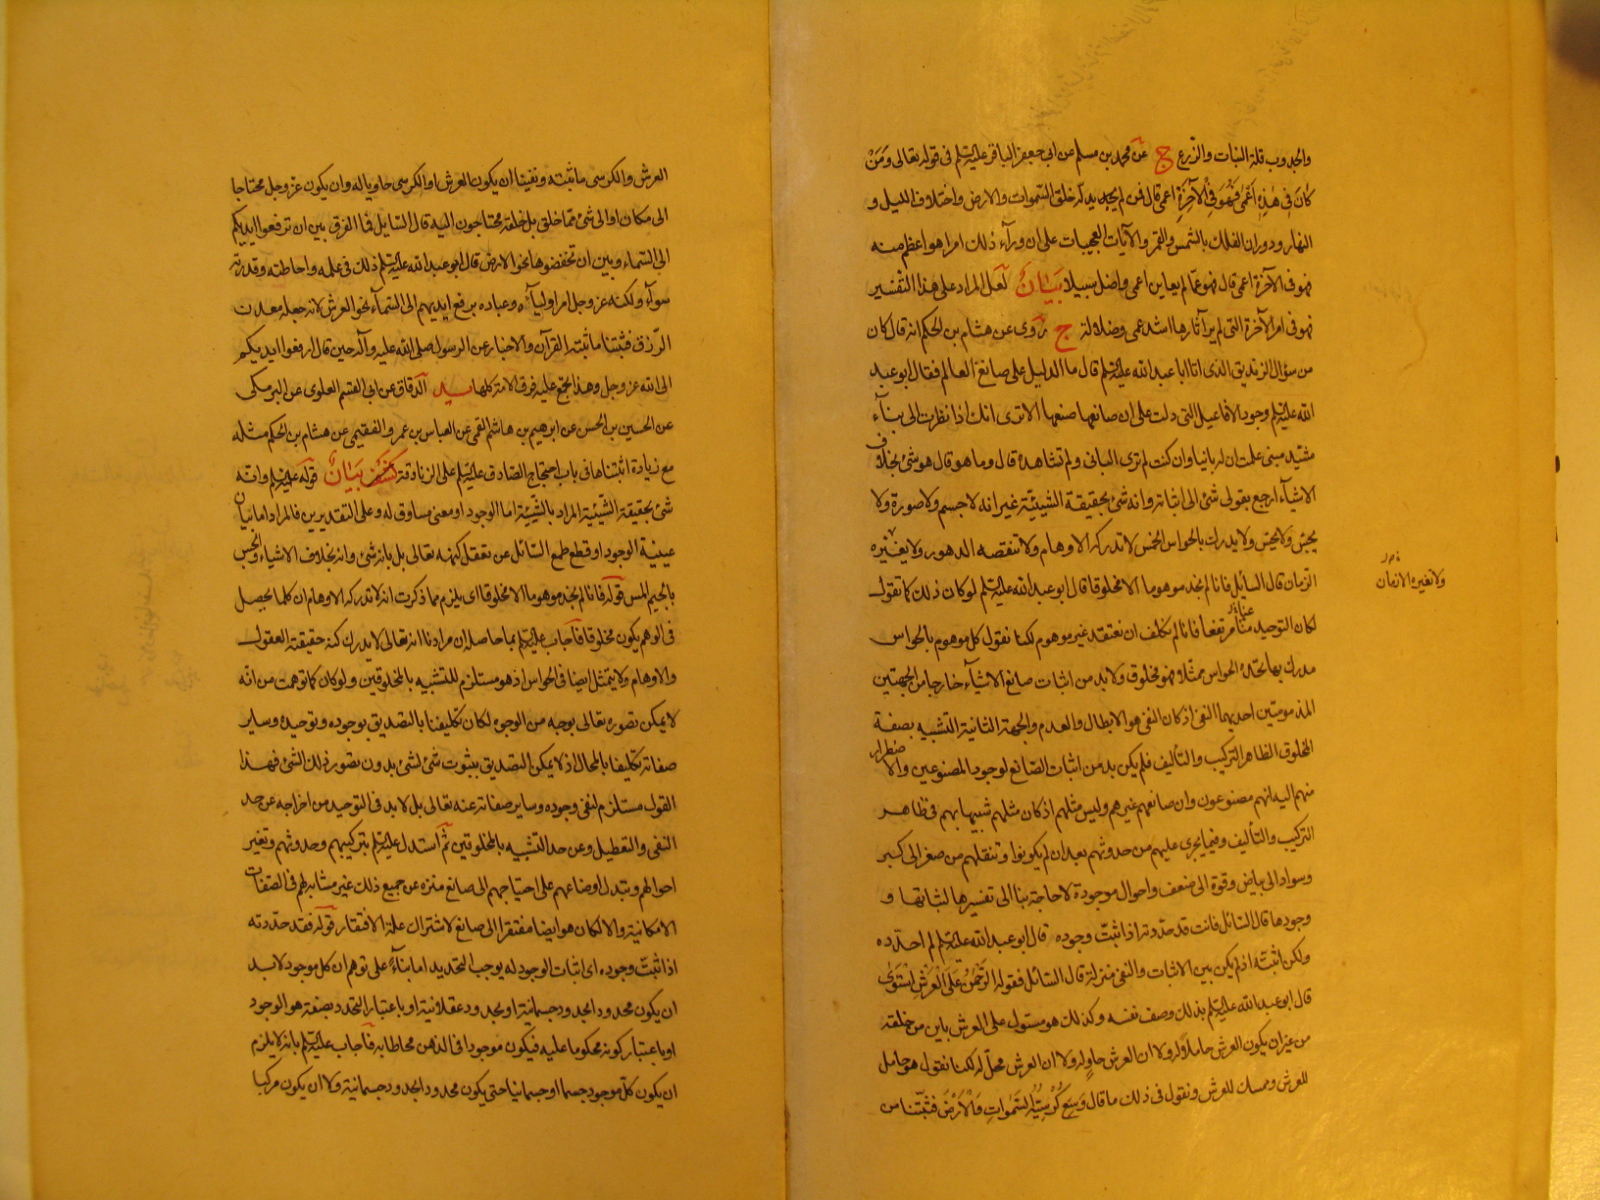 والجدوب قلة النبات والزرع ج عن محمد بن مسلم عن ابي جعفر الباقر عليه السلم في قوله تعالى ومَنْ
كانَ في هٰذِهِ اَعْمىٰ فَهُوَ فِي الْآخِرَةِ اعمى قال فمن لم يجد يدله خلق السموات والارض واختلاف الليل و
النهار ودوران الفلك بالشمس والقمر والآيات العجيبات على ان ورآء ذلك امرا هو اعظم منه
فهو في الآخرة اعمى قال فهو عما لم يعاين اعمى واضل سبيلا بَيانٌ لعل المراد على هذا التفسير
فهو في امر الآخرة التي لم ير آثارها اشد عمى وضلالة ج روى عن هشام بن الحكم انه قال كان
من سؤال الزنديق الذي اتا ابا عبد الله عليه السلم قال ما الدليل على صانع العالم فقال ابو عبد
الله عليه السلم وجود الافاعيل التي دلت على ان صانعها صنعها الا ترى انك اذا نظرت الى بنآء
مشيد مبني علمت ان له بانيا وان كنت لم ترى الباني ولم تشاهده قال وما هو قال هو شئ بخلاف
الاشيآء ارجع بقولي شئ الى اثباته وانه شئ بحقيقة الشيئية غير انه لا جسم ولا صورة ولا
يحس ولا يجس ولا يدرك بالحواس الخمس لا تدركه الاوهام ولا تنقصه الدهور ولا يغيره
ولا تغيره الازمان
الزمان قال السائل فانا لم نجد موهوما الا مخلوقا قال ابو عبد الله عليه السلم لو كان ذلك كما تقول
لكان التوحيد منا مرتفعا فانا لم نكلف ان نعتقد غير موهوم لكنا نقول كل موهوم بالحواس
مدرك بها تحده الحواس ممثلا فهو مخلوق ولا بد من اثبات صانع الاشيآء خارجا من الجهتين
المذمومتين احديهما النفي اذ كان النفي هو الابطال والعدم والجهة الثانية التشبيه بصفة
المخلوق الظاهر التركيب والتأليف فلم يكن بد من اثبات الصانع لوجود المصنوعين والاضطرار
منهم اليه انهم مصنوعون وان صانعهم غيرهم وليس مثلهم اذ كان مثلهم شبيها بهم في ظاهر
التركيب والتأليف وفيما يجرى عليهم من حدوثهم بعد ان لم يكونوا وتنقلهم من صغر الى كبر
وسواد الى بياض وقوة الى ضعف واحوال موجودة لا حاجة بنا الى تفسيرها لثباتها و
وجودها قال السائل فانت قد حددته اذا ثبتّ وجوده قال ابو عبد الله عليه السلم لم احدده
ولكن اثبته اذ لم يكن بين الاثبات والنفي منزلة قال السائل فقوله الرَّحْمٰنُ عَلَى الْعَرْشِ اسْتَوىٰ
قال ابو عبد الله عليه السلم بذلك وصف نفسه وكذلك هو مستول على العرش باين من خلقه
من غير ان يكون العرش حاملا له ولا ان العرش حاوٍ له ولا ان العرش محلّ له لكنا نقول هو حامل
للعرش وممسك للعرش ونقول في ذلك ما قال وَسِعَ كُرْسِيُّهُ السَّمٰواتِ وَالْاَرْضَ فثبّتنا من
العرش والكرسي ما ثبته ونفينا ان يكون العرش او الكرسي حاويا له وان يكون عز وجل محتاجا
الى مكان او الى شئ مما خلق بل خلقه محتاجون اليه قال السائل فما الفرق بين ان ترفعوا ايديكم
الى السماء وبين ان تخفضوها نحو الارض قال ابو عبد الله عليه السلم ذلك في علمه واحاطته وقدرته
سوآء ولكنه عز وجل امر اوليآءه وعباده برفع ايديهم الى السمآء نحو العرش لانه جعله معدن
الرزق فثبتنا ما ثبته القرآن والاخبار عن الرسول صلى الله عليه وآله حين قال ارفعوا ايديكم
الى الله عز وجل وهذا يجمع عليه فرق الامة كلها يد الدقاق عن ابي القسم العلوي عن البرمكي
عن الحسين بن الحسن عن ابرهيم بن هاشم القمي عن العباس بن عمرو الفقيمي عن هشام بن الحكم مثله
مع زيادة اثبتناها في باب احتجاج الصادق عليه السلم على الزنادقة بَيانٌ قوله عليه السلم وانه
شئ بحقيقة الشيئية المراد بالشيئية اما الوجود او معنى مساوق له وعلى التقديرين فالمراد اما بيان
عينية الوجود او قطع طمع السائل عن تعقل كنهه تعالى بل بانه شئ وانه بخلاف الاشياء والجس
بالجيم المس قوله فانا لم نجد موهوما الا مخلوقا اي يلزم مما ذكرت انه لا تدركه الاوهام ان كلما يحصل
في الوهم يكون مخلوقا فاجاب عليه السلم بما حاصله ان مرادنا انه تعالى لا يدرك كنه حقيقته العقول
والاوهام ولا يتمثل ايضا في الحواس اذ هو مستلزم للتشبيه بالمخلوقين ولو كان كما توهمت من انه
لا يمكن تصوره تعالى بوجه من الوجوه لكان تكليفنا بالتصديق بوجوده وتوحيده وساير
صفاته تكليفا بالمحال اذ لا يمكن التصديق بثبوت شئ لشئ بدون تصور ذلك الشئ فهذا
القول مستلزم لنفي وجوده وساير صفاته عنه تعالى بل لا بد في التوحيد من اخراجه عن حد
النفي والتعطيل وعن حد التشبيه بالمخلوقين ثم استدل عليه السلم بتركيبهم وحدوثهم وتغير
احوالهم وتبدل اوضاعهم على احتياجهم الى صانع منزه عن جميع ذلك غير مشابه لهم في الصفات
الامكانية والا لكان هو ايضا مفتقرا الى صانع لاشتراك علة الافتقار قوله فقد حددته
اذا ثبتّ وجوده اي اثبات الوجود له يوجب التحديد اما بنآءً على توهم ان كل موجود لا بد
ان يكون محدودا بحدود جسمانية او بحدود عقلانية او باعتبار التحدد بصفة هو الوجود
او باعتبار كونه محكوما عليه فيكون موجودا في الذهن محاطا به فاجاب عليه السلم بانه لا يلزم
ان يكون كلّ موجود جسما او جسمانيا حتى يكون محدودا بحدود جسمانية ولا ان يكون مركبا